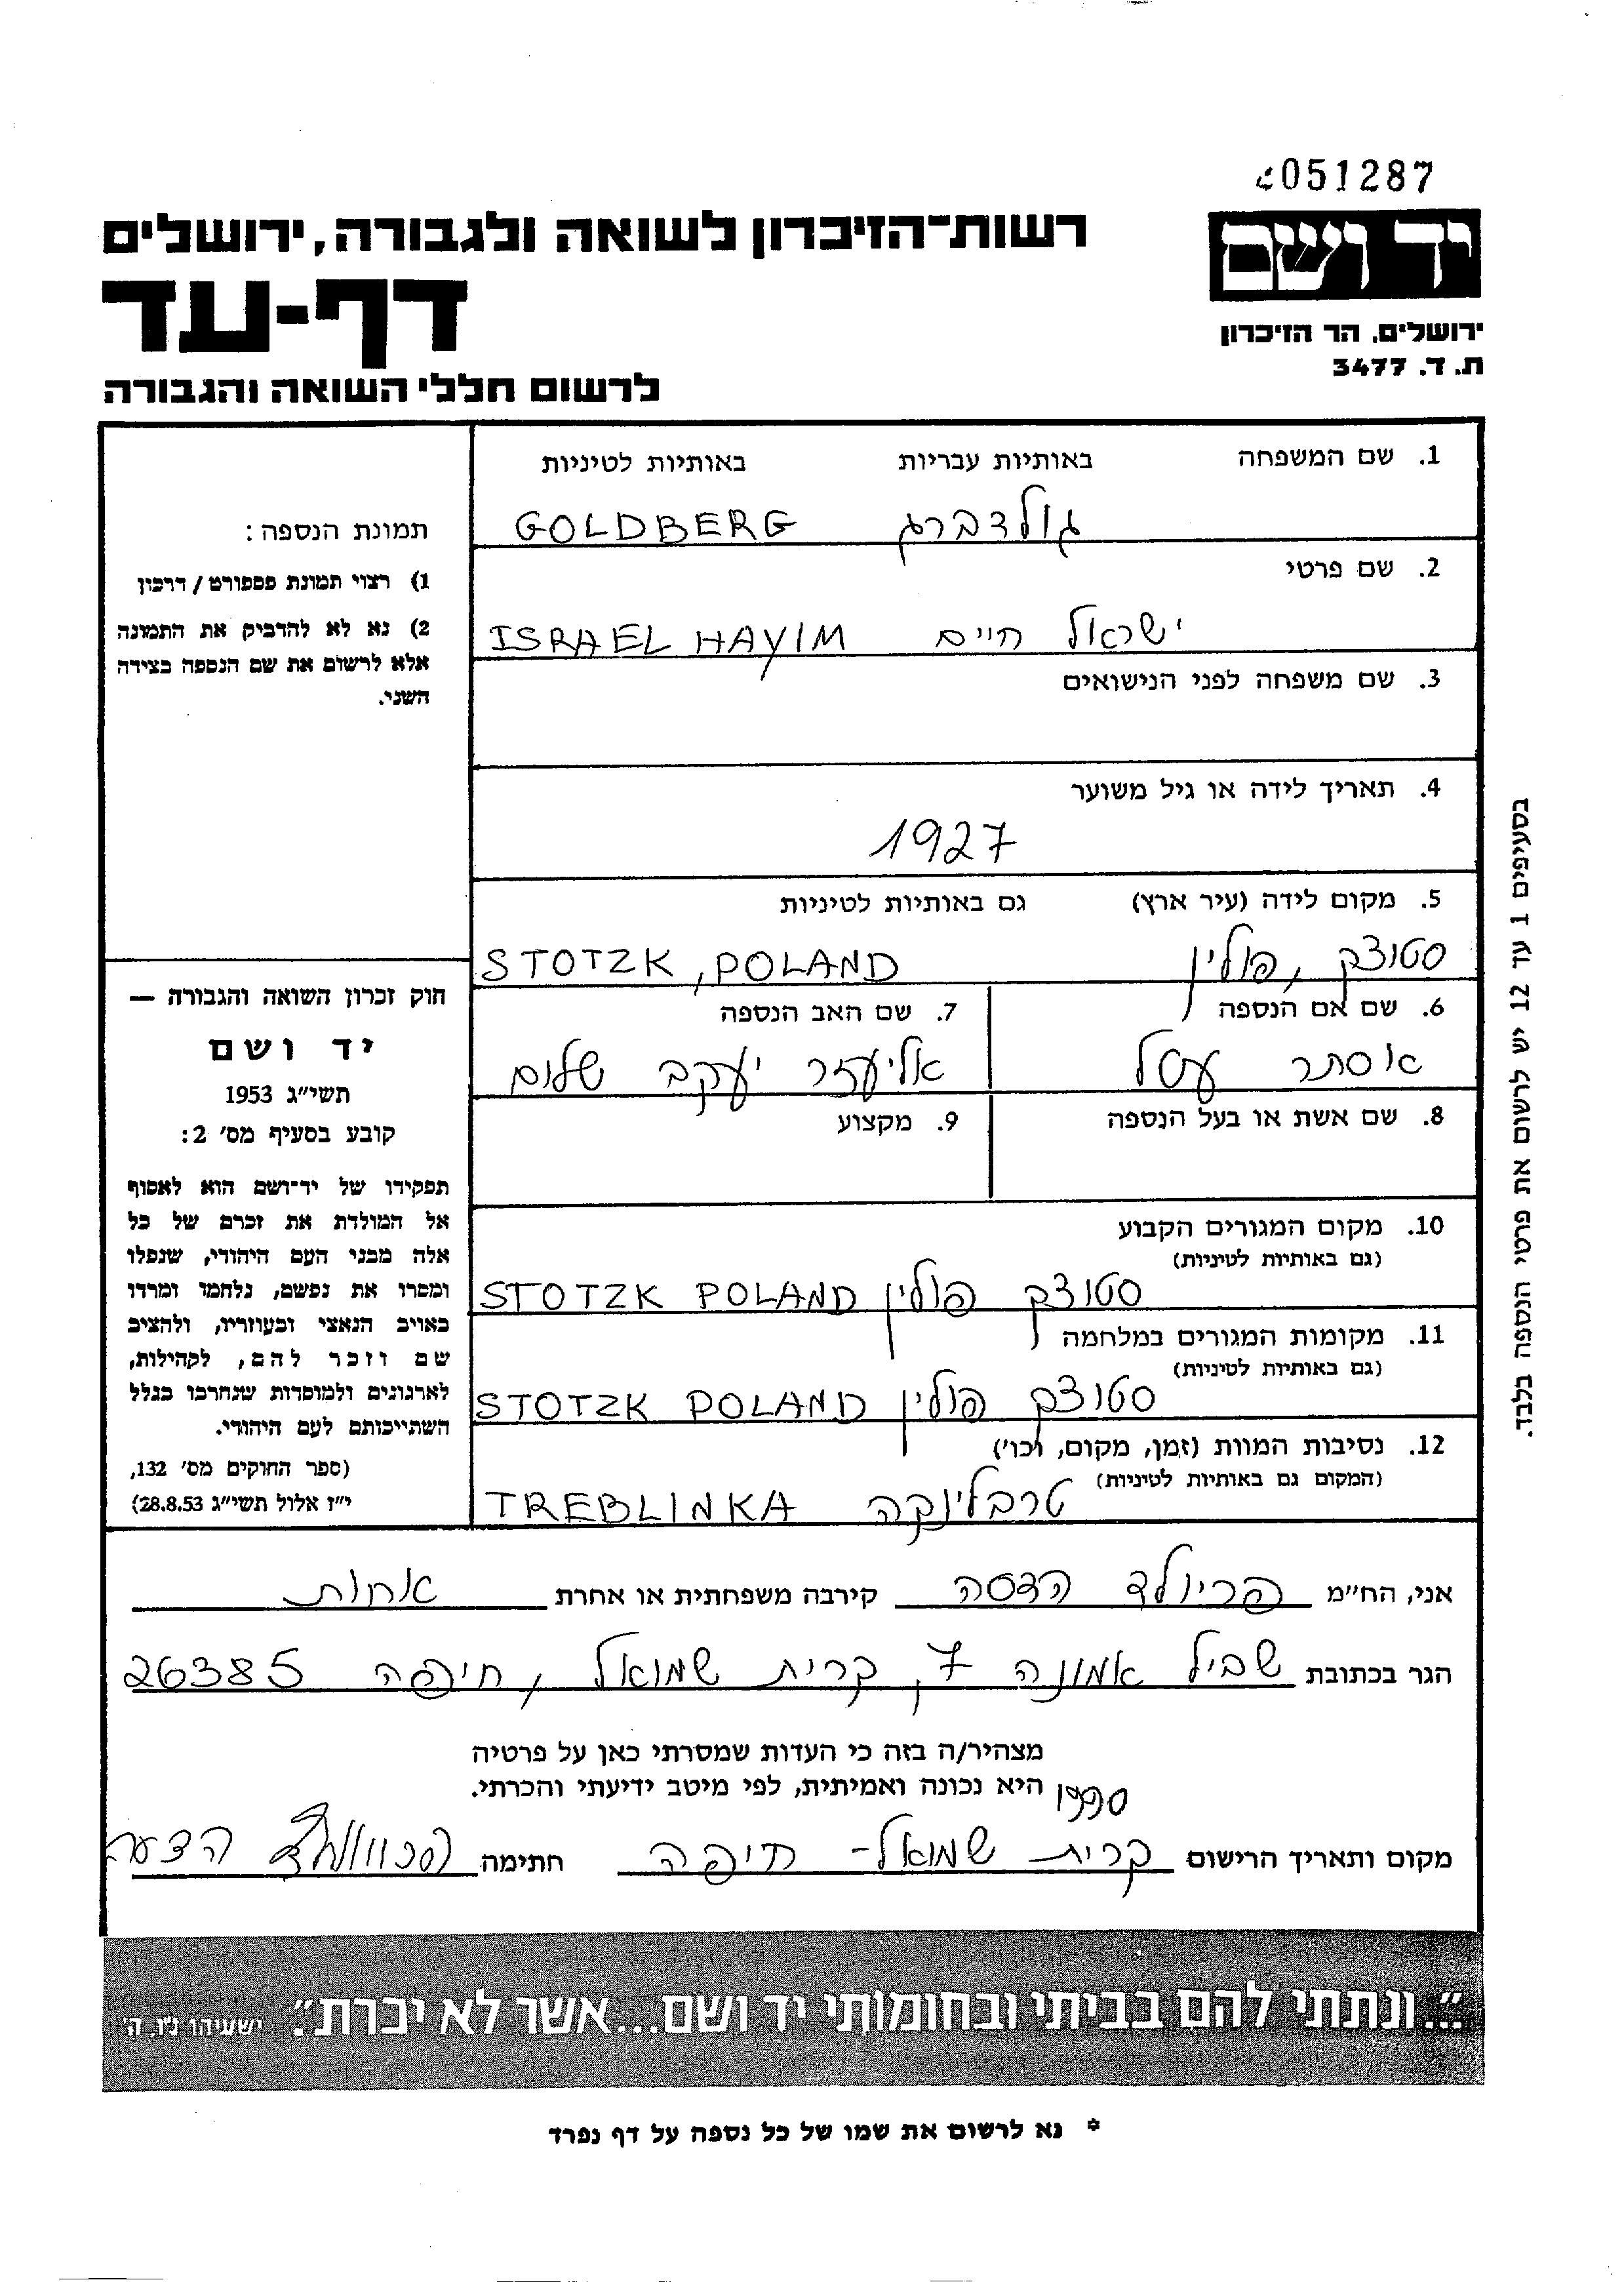 051287
יד ושם
ירושלים, הר הזיכרון
ת. ד. 3477
רשות־הזיכרון לשואה ולגבורה, ירושלים
דף-עד
לרשום חללי השואה והגבורה
1. שם המשפחה באותיות עבריות באותיות לטיניות
גולדברג GOLDBERG
2. שם פרטי
ישראל חיים ISRAEL HAYIM
3. שם משפחה לפני הנישואים
4. תאריך לידה או גיל משוער
1927
5. מקום לידה (עיר ארץ) גם באותיות לטיניות
סטוצק, פולין STOTZK, POLAND
6. שם אם הנספה 7. שם האב הנספה
אסתר עטל אליעזר יעקב שלום
8. שם אשת או בעל הנספה 9. מקצוע
10. מקום המגורים הקבוע
(גם באותיות לטיניות)
סטוצק פולין STOTZK POLAND
11. מקומות המגורים במלחמה
(גם באותיות לטיניות)
סטוצק פולין STOTZK POLAND
12. נסיבות המוות (זמן, מקום, וכו')
(המקום גם באותיות לטיניות)
טרבלינקה TREBLINKA
תמונת הנספה:
1) רצוי תמונת פספורט / דרכון
2) נא לא להדביק את התמונה
אלא לרשום את שם הנספה בצידה
השני.
חוק זכרון השואה והגבורה —
יד ושם
תשי"ג 1953
קובע בסעיף מס' 2:
תפקידו של יד־ושם הוא לאסוף
אל המולדת את זכרם של כל
אלה מבני העם היהודי, שנפלו
ומסרו את נפשם, נלחמו ומרדו
באויב הנאצי ובעוזריו, ולהציב
שם וזכר להם, לקהילות,
לארגונים ולמוסדות שנחרבו בגלל
השתייכותם לעם היהודי.
(ספר החוקים מס' 132,
י"ז אלול תשי"ג 28.8.53)
בסעיפים 1 עד 12 יש לרשום את פרטי הנספה בלבד.
אני, הח"מ פריולד הדסה קירבה משפחתית או אחרת אחות
הגר בכתובת שביל אמונה 7, קרית שמואל, חיפה 26385
מצהיר/ה בזה כי העדות שמסרתי כאן על פרטיה
היא נכונה ואמיתית, לפי מיטב ידיעתי והכרתי.
מקום ותאריך הרישום קרית שמואל - חיפה חתימה
"...ונתתי להם בביתי ובחומותי יד ושם...אשר לא יכרת". ישעיהו נ"ו, ה'
* נא לרשום את שמו של כל נספה על דף נפרד